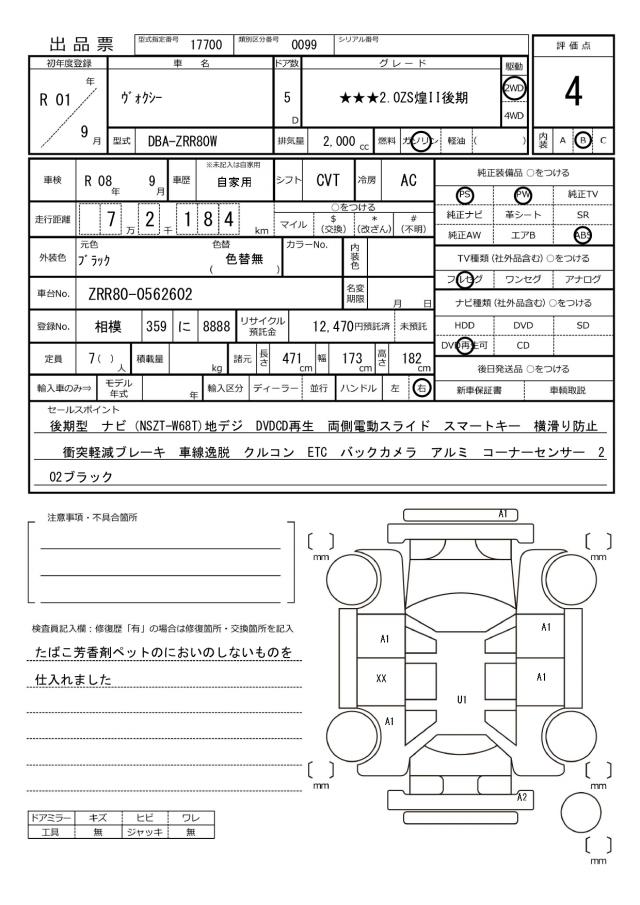 出品票 型式指定番号 17700 類別区分番号 0099 シリアル番号
評価点
4
内装 A B C
初年度登録 車名 ドア数 グレード 駆動
R 01 年 9 月 ヴォクシー 5 D ★★★2.0ZS煌II後期 2WD 4WD
型式 DBA-ZRR80W 排気量 2,000 cc 燃料 ガソリン 軽油 ( )
車検 R 08 年 9 月 車歴 ※未記入は自家用 自家用 シフト CVT 冷房 AC
走行距離 7 万 2 千 1 8 4 km ○をつける
マイル $ (交換) * (改ざん) # (不明)
外装色 元色 ブラック 色替 ( 色替無 ) カラーNo. 内装色
車台No. ZRR80-0562602 名変期限 月 日
登録No. 相模 359 に 8888 リサイクル預託金 12,470円預託済 未預託
定員 7( )人 積載量 kg 諸元 長さ 471 cm 幅 173 cm 高さ 182 cm
輸入車のみ⇒ モデル年式 年 輸入区分 ディーラー 並行 ハンドル 左 右
純正装備品 ○をつける
PS PW 純正TV
純正ナビ 革シート SR
純正AW エアB ABS
TV種類(社外品含む) ○をつける
フルセグ ワンセグ アナログ
ナビ種類(社外品含む) ○をつける
HDD DVD SD
DVD再生可 CD
後日発送品 ○をつける
新車保証書 車輌取説
セールスポイント
後期型 ナビ(NSZT-W68T)地デジ DVDCD再生 両側電動スライド スマートキー 横滑り防止
衝突軽減ブレーキ 車線逸脱 クルコン ETC バックカメラ アルミ コーナーセンサー 2
02ブラック
注意事項・不具合箇所
検査員記入欄：修復歴「有」の場合は修復箇所・交換箇所を記入
たばこ芳香剤ペットのにおいのしないものを
仕入れました
ドアミラー キズ ヒビ ワレ
工具 無 ジャッキ 無
A1
[ ] mm
[ ] mm
A1
A1
XX
A1
U1
A1
[ ] mm
[ ] mm
A2
[ ] mm